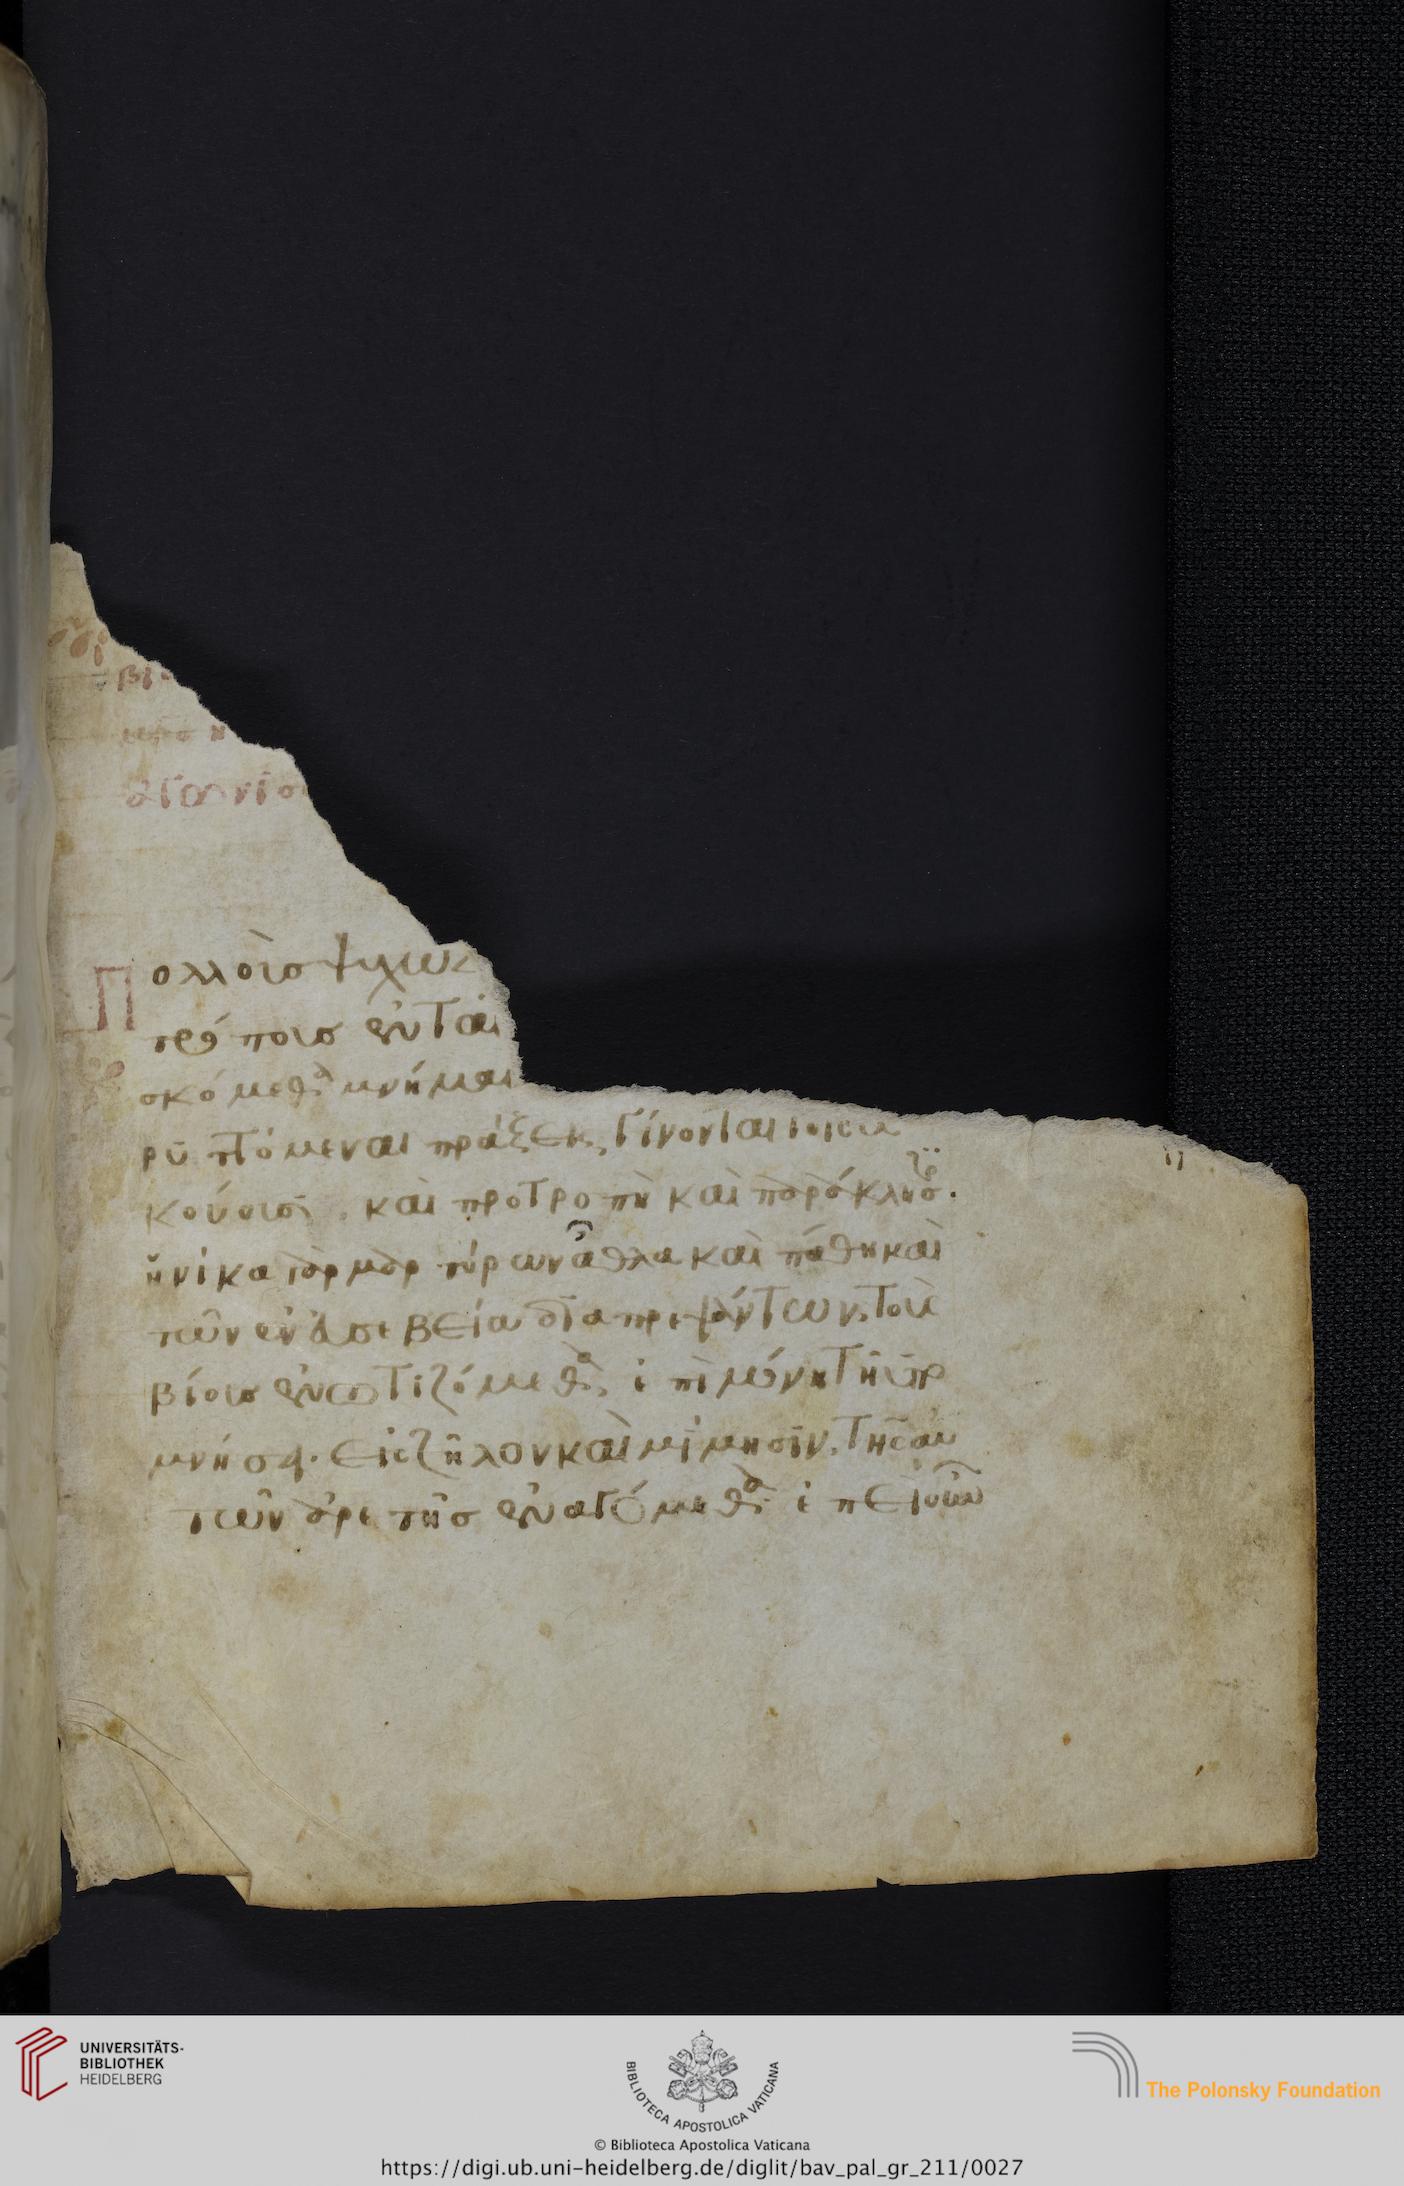 βι
μεση
ἀγωνισ
Πολλοῖς ψυχω
τρόποις ἐνται
σκόμεθα μνήμαι
ρυπτόμεναι πράξεις, γίνονται τοῖς
κούουσι, καὶ προτροπὴ καὶ παράκλησ.
ἡνίκα γὰρ μαρτύρων ἆθλα καὶ πάθη καὶ
τῶν ἐν εὐσεβεία διαπρεψάντων, τοὺς
βίους ἐνωτιζόμεθα, ἐπὶ μόνη τῆ
μνήση. εἰς ζῆλον καὶ μίμησιν, τῆς αὐ
τῶν ἀρετῆς ἐναγόμεθα· ἐπεὶ οὖν
UNIVERSITÄTS-
BIBLIOTHEK
HEIDELBERG
BIBLIOTECA APOSTOLICA VATICANA
The Polonsky Foundation
© Biblioteca Apostolica Vaticana
https://digi.ub.uni-heidelberg.de/diglit/bav_pal_gr_211/0027